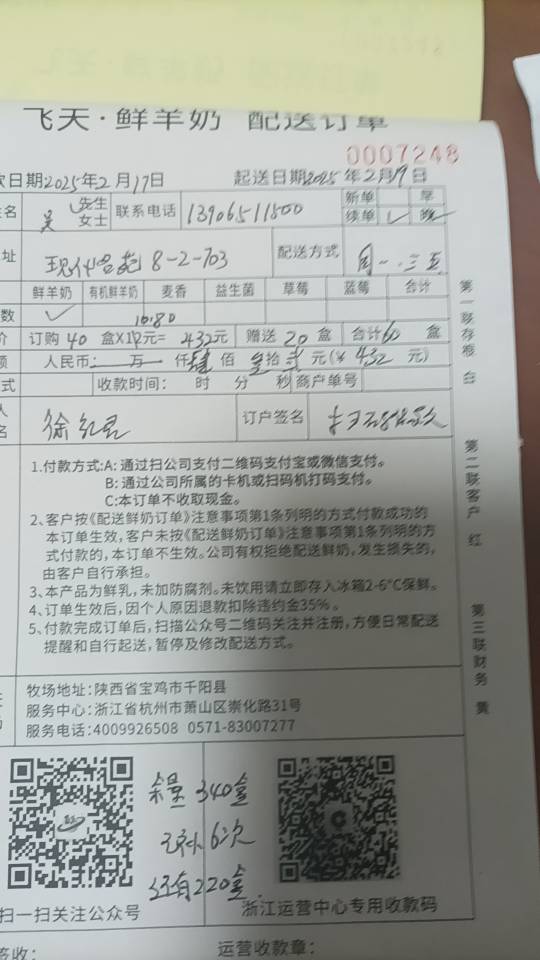 飞天·鲜羊奶 配送订单
0007248
款日期:2025年2月17日 起送日期2025年2月19日
名 吴 先生 女士 联系电话 13906511500 新单 早 续单 ✓ 晚
址 现代名苑 8-2-703 配送方式 周一.三五
鲜羊奶 有机鲜羊奶 麦香 益生菌 草莓 蓝莓 合计
数 ✓ 10.80
价 订购 40 盒X12元= 432元 赠送 20 盒 合计60 盒
额 人民币: 万 仟肆佰 叁拾 贰 元(¥ 432 元)
式 收款时间: 时 分 秒 商户单号
人名 徐红君 订户签名
1.付款方式:A: 通过扫公司支付二维码支付宝或微信支付。
B: 通过公司所属的卡机或扫码机打码支付。
C:本订单不收取现金。
2、客户按《配送鲜奶订单》注意事项第1条列明的方式付款成功的
本订单生效,客户未按《配送鲜奶订单》注意事项第1条列明的方
式付款的,本订单不生效。公司有权拒绝配送鲜奶,发生损失的,
由客户自行承担。
3、本产品为鲜乳,未加防腐剂。未饮用请立即存入冰箱2-6°C保鲜。
4、订单生效后,因个人原因退款扣除违约金35%。
5、付款完成订单后,扫描公众号二维码关注并注册,方便日常配送
提醒和自行起送,暂停及修改配送方式。
牧场地址:陕西省宝鸡市千阳县
服务中心:浙江省杭州市萧山区崇化路31号
服务电话:4009926508 0571-83007277
余量 340盒
6次
还有220盒.
扫一扫关注公众号
浙江运营中心专用收款码
签收:
运营收款章:
第一联存根 白
第二联客户 红
第三联财务 黄